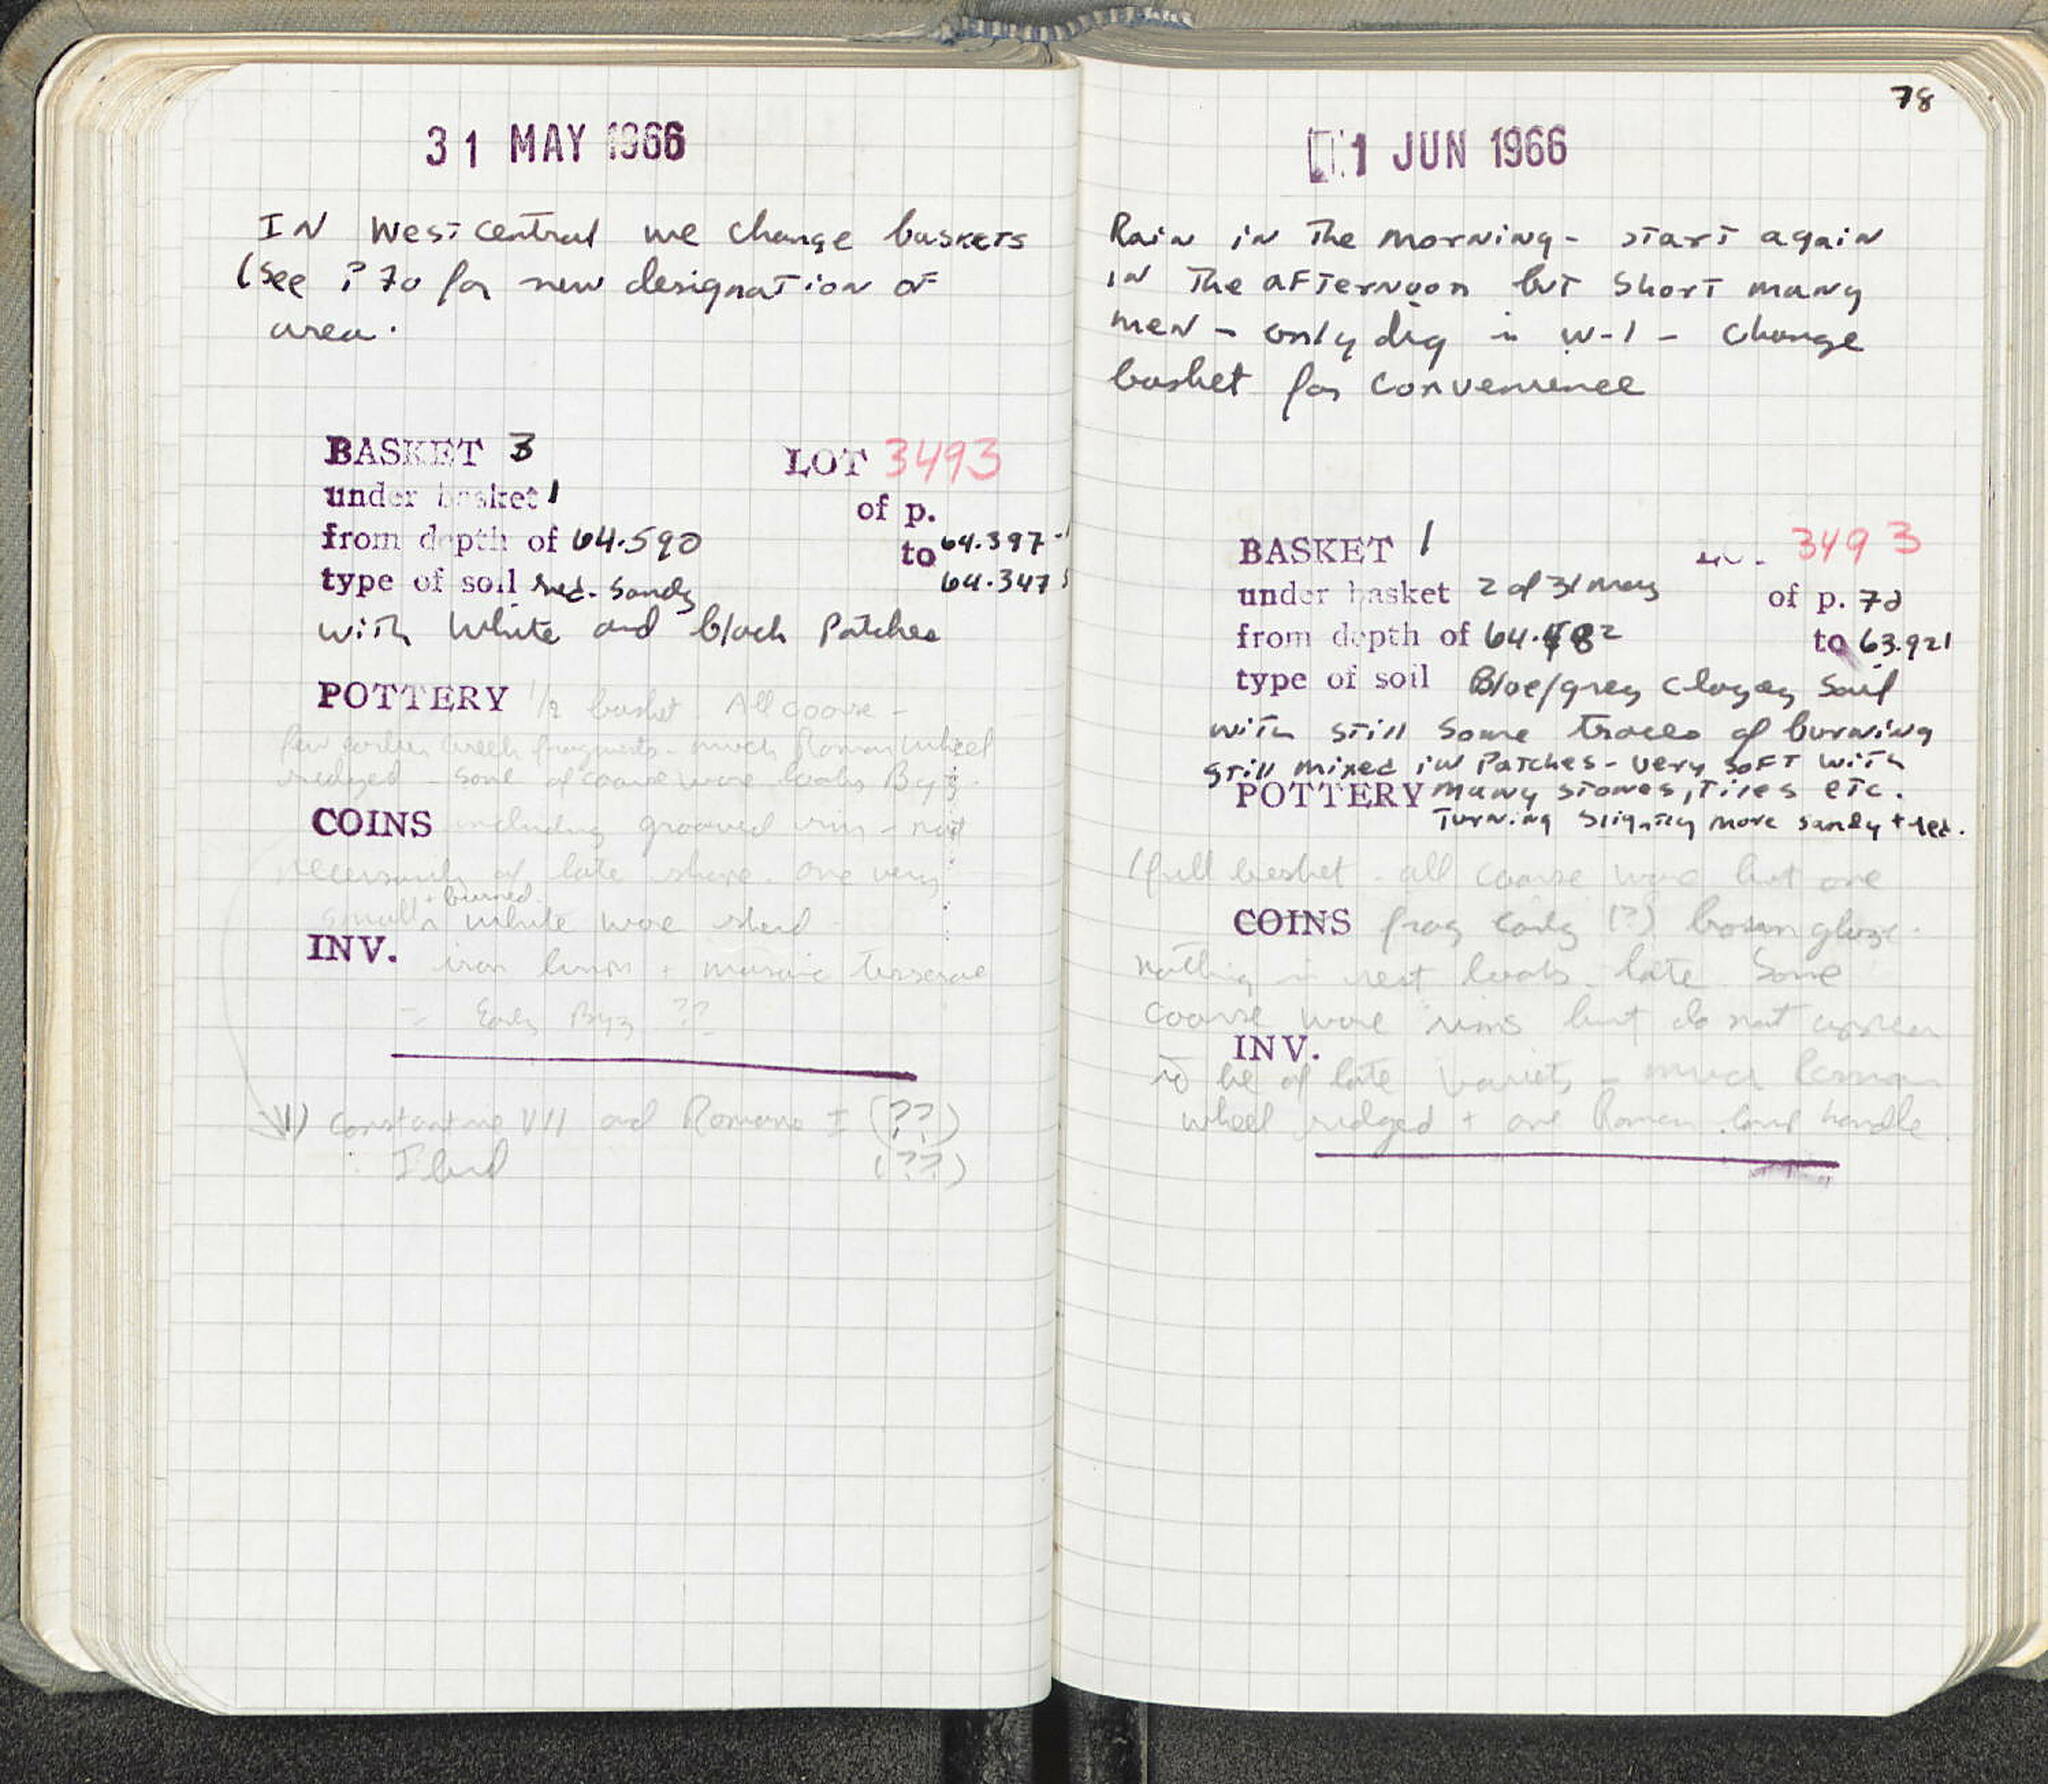 31 MAY 1966
IN West central we change baskets
(see P 70 for new designation of
area.
BASKET 3 LOT 3493
under basket 1 of p.
from depth of 64.590 to 64.397
64.347
type of soil red. sandy
with white and black patches
POTTERY 1/2 basket. All coarse -
few earlier Greek fragments - much Roman wheel
ridged - some of coarse ware looks Byz.
COINS including grooved rim - not
necessarily of late shape. one very
+ burned
small ^ white ware sherd
INV.
iron lump + mosaic tesserae
= Early Byz ??
1) Constantine VII and Romanus I (??)
(??)
78
1 JUN 1966
Rain in the morning - start again
in the afternoon but short many
men - only dig in W-1 - change
basket for convenience
BASKET 1 LOT 3493
under basket 2 of 31 May of p.
from depth of to 63.921
type of soil Blue/grey clayey soil
with still some traces of burning
still mixed in patches - very soft with
POTTERY many stones, tiles etc.
Turning slightly more sandy + red.
1 full basket - all coarse ware but one
COINS frag early (?) brown glaze.
nothing in rest looks late. Some
coarse ware rims but do not appear
INV.
to be of late variety - much Roman
wheel ridged + one Roman lamp handle